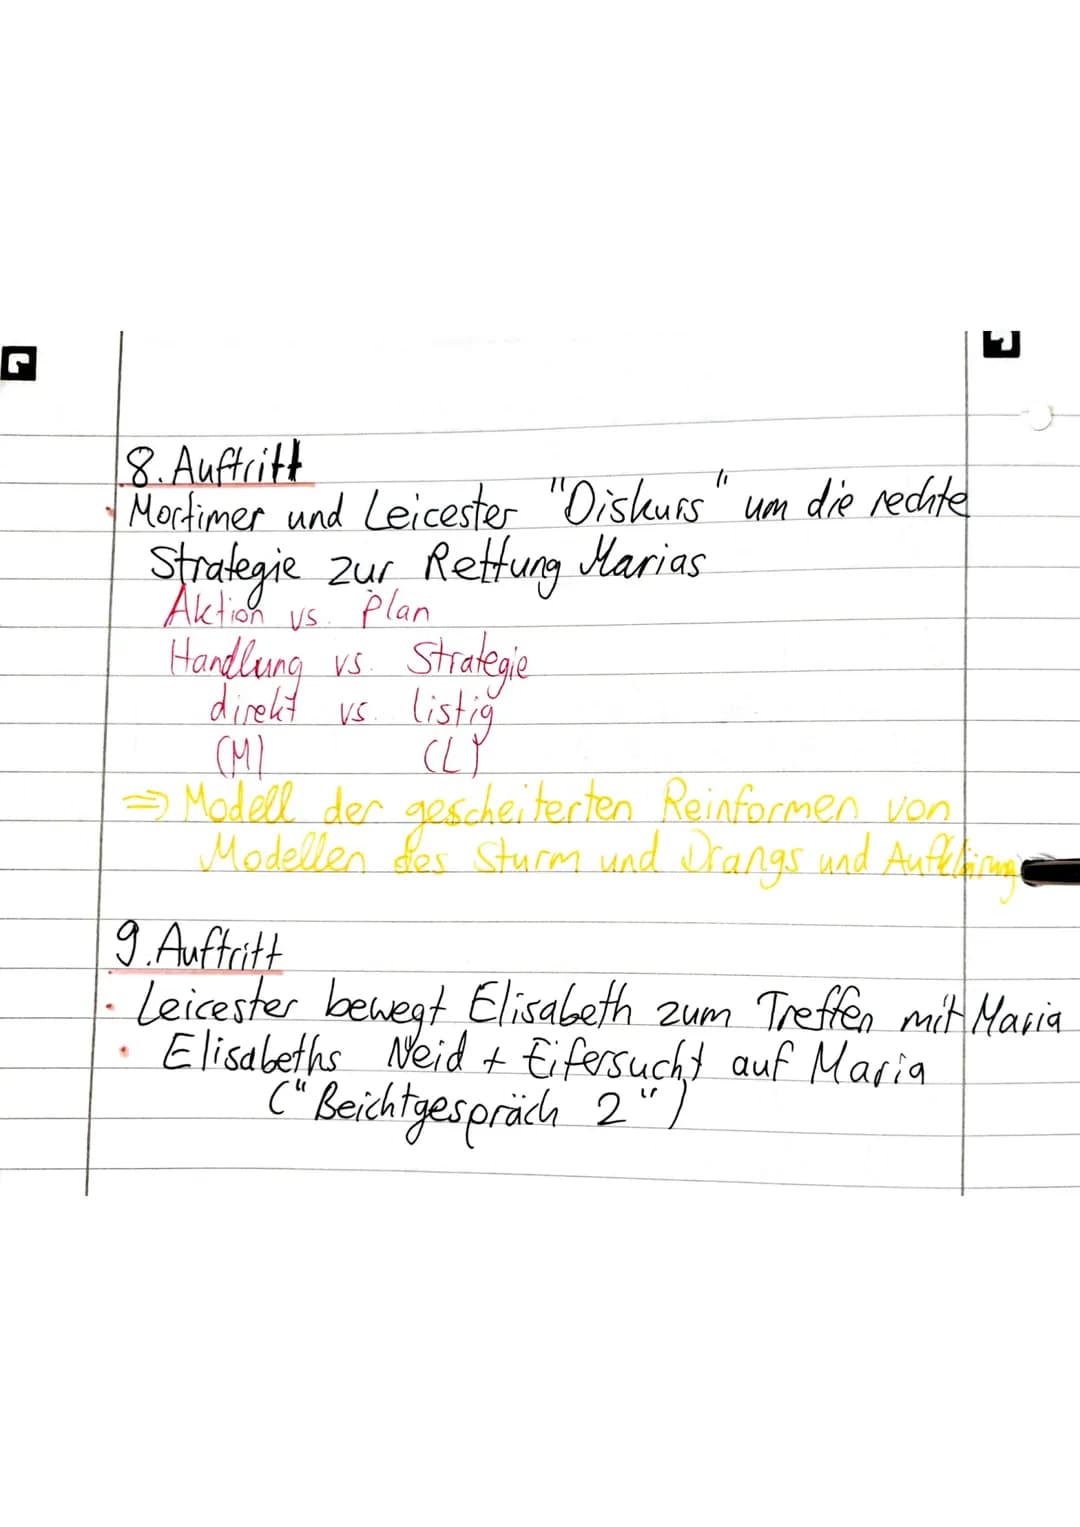 8. Auftritt
• Mortimer und Leicester "Diskurs" um die rechte
Strategie zur Rettung Marias
Aktion vs. Plan
Handlung vs. Strategie
direkt vs. listig
(M) (L)
=> Modell der gescheiterten Reinformen von
Modellen des Sturm und Drangs und Aufklärung
9. Auftritt
• Leicester bewegt Elisabeth zum Treffen mit Maria
• Elisabeths Neid + Eifersucht auf Maria
("Beichtgespräch 2")